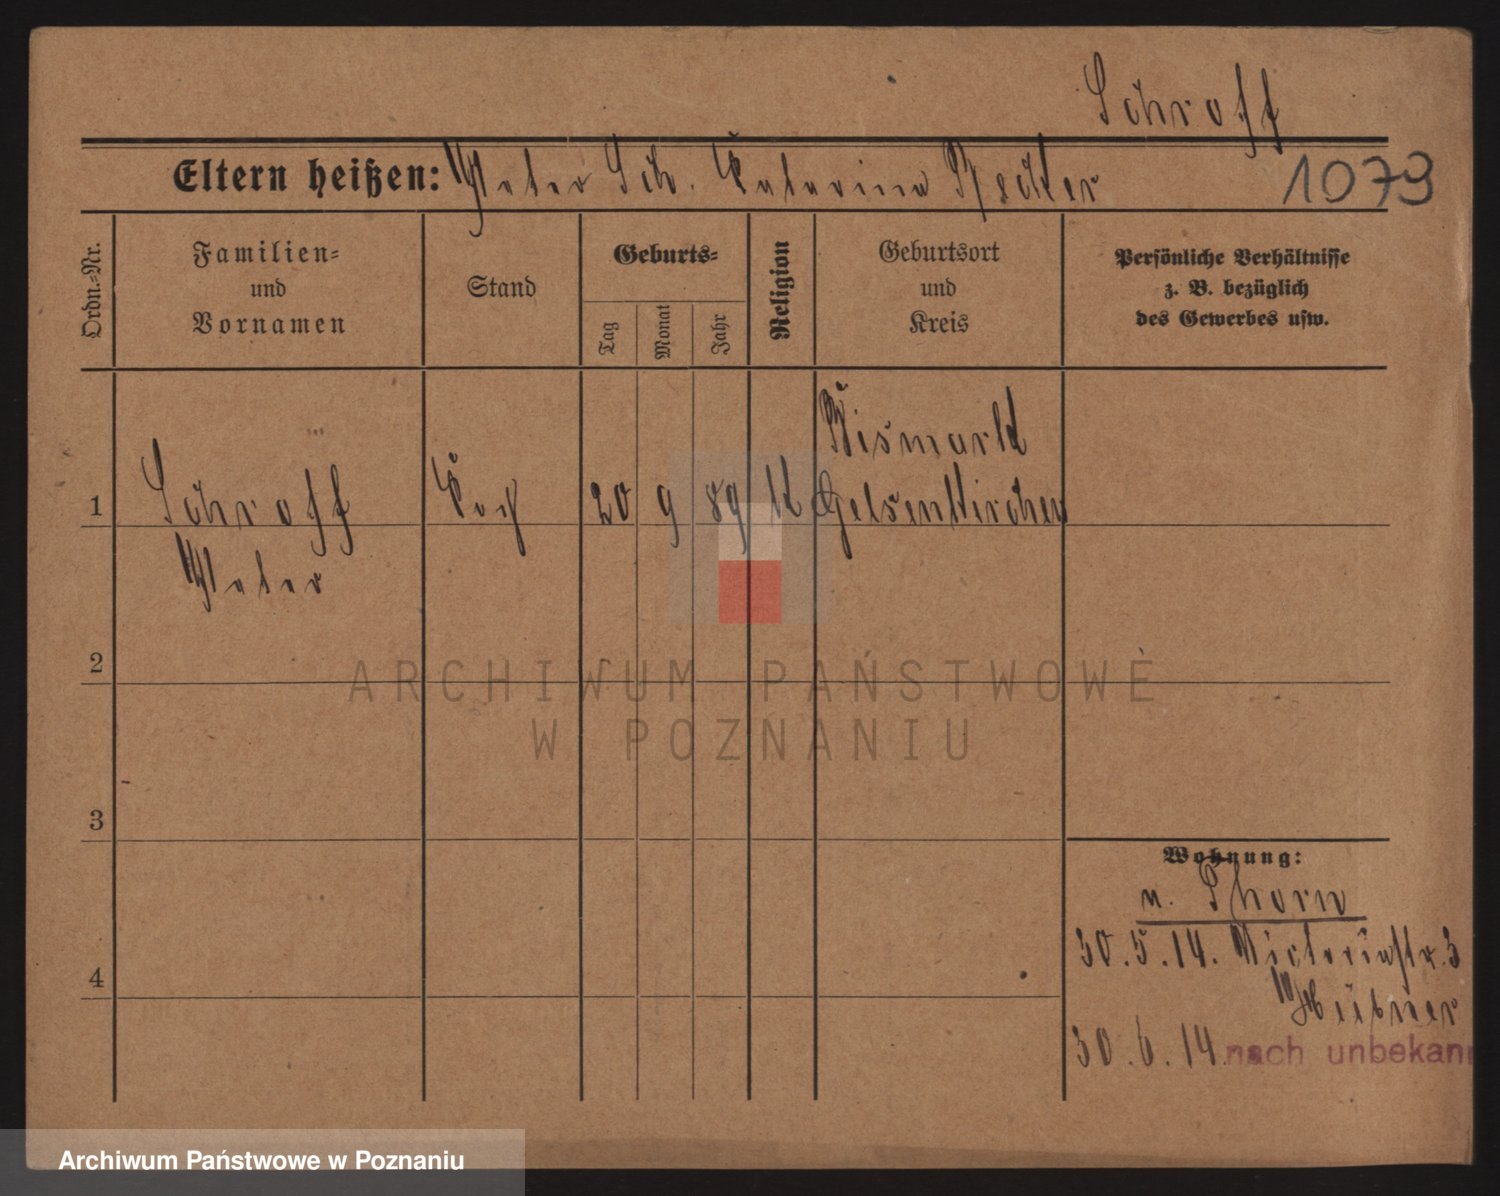 Schroff
Eltern heißen: Peter Sch. Catarina Rekter
1079
Ordn.=Nr.
Familien=
und
Vornamen
Stand
Geburts=
Tag
Monat
Jahr
Religion
Geburtsort
und
Kreis
Persönliche Verhältnisse
z. B. bezüglich
des Gewerbes usw.
1
Schroff
Peter
Koch
20 9 89 k
Bismark
Gelsenkirchen
2
3
4
Wohnung:
n. Thorn
30.5.14. Victoriastr. 3
Hübner
30.6.14. nach unbekan
ARCHIWUM PAŃSTWOWE
W POZNANIU
Archiwum Państwowe w Poznaniu